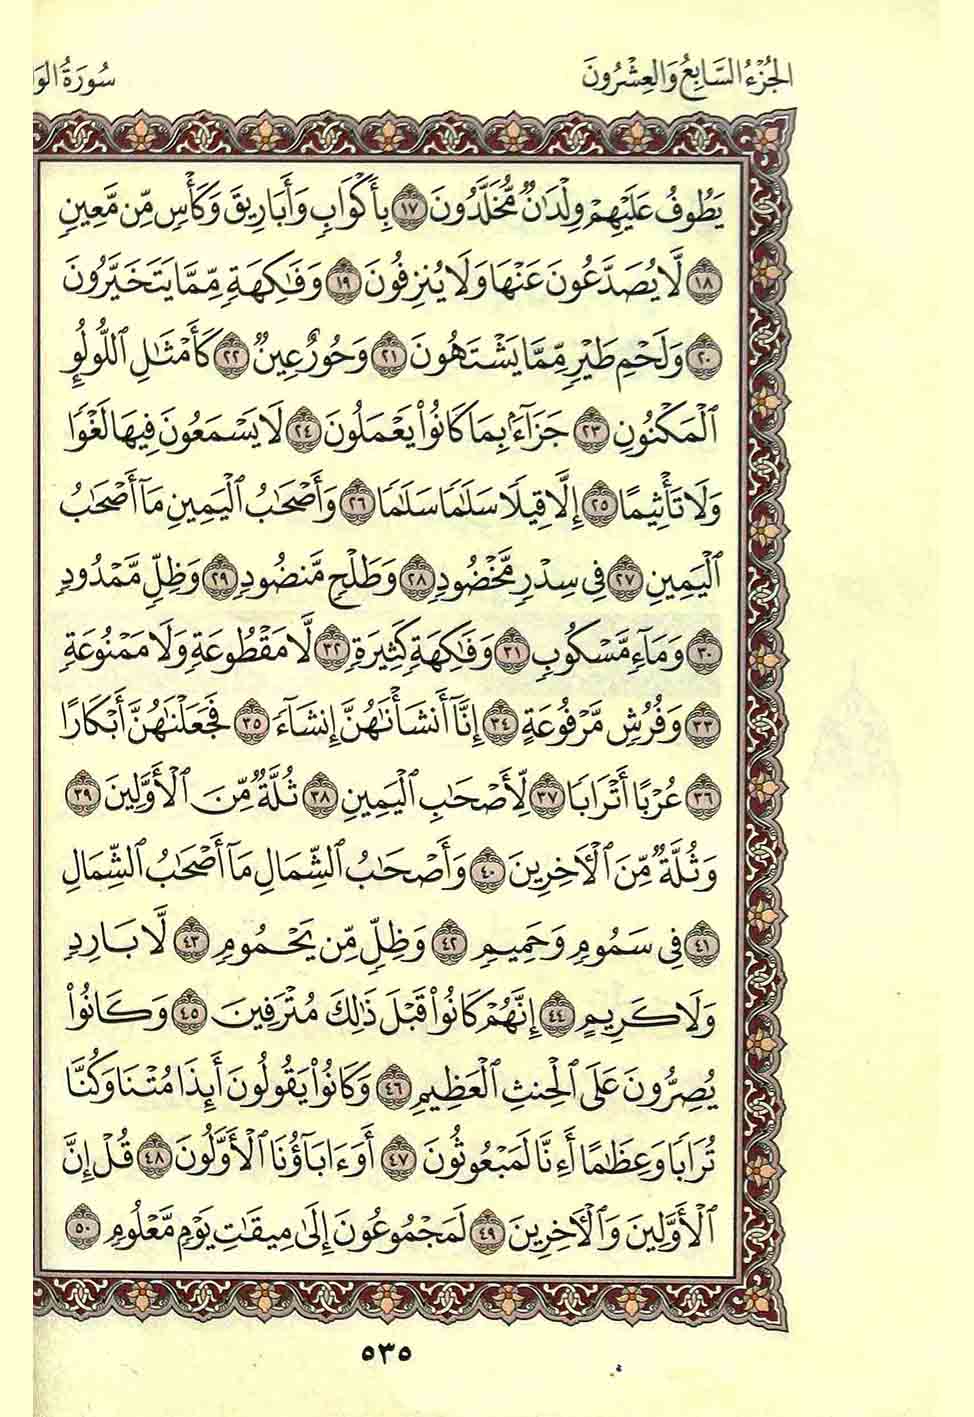 الجُزْءُ السَّابِعُ وَالعِشْرُونَ
سُورَةُ الوَا
يَطُوفُ عَلَيْهِمْ وِلْدَٰنٌ مُّخَلَّدُونَ ١٧ بِأَكْوَابٍ وَأَبَارِيقَ وَكَأْسٍ مِّن مَّعِينٍ
١٨ لَّا يُصَدَّعُونَ عَنْهَا وَلَا يُنزِفُونَ ١٩ وَفَٰكِهَةٍ مِّمَّا يَتَخَيَّرُونَ
٢٠ وَلَحْمِ طَيْرٍ مِّمَّا يَشْتَهُونَ ٢١ وَحُورٌ عِينٌ ٢٢ كَأَمْثَٰلِ ٱللُّؤْلُوِٕ
ٱلْمَكْنُونِ ٢٣ جَزَآءًۢ بِمَا كَانُوا۟ يَعْمَلُونَ ٢٤ لَا يَسْمَعُونَ فِيهَا لَغْوًا
وَلَا تَأْثِيمًا ٢٥ إِلَّا قِيلًا سَلَٰمًا سَلَٰمًا ٢٦ وَأَصْحَٰبُ ٱلْيَمِينِ مَآ أَصْحَٰبُ
ٱلْيَمِينِ ٢٧ فِى سِدْرٍ مَّخْضُودٍ ٢٨ وَطَلْحٍ مَّنضُودٍ ٢٩ وَظِلٍّ مَّمْدُودٍ
٣٠ وَمَآءٍ مَّسْكُوبٍ ٣١ وَفَٰكِهَةٍ كَثِيرَةٍ ٣٢ لَّا مَقْطُوعَةٍ وَلَا مَمْنُوعَةٍ
٣٣ وَفُرُشٍ مَّرْفُوعَةٍ ٣٤ إِنَّآ أَنشَأْنَٰهُنَّ إِنشَآءً ٣٥ فَجَعَلْنَٰهُنَّ أَبْكَارًا
٣٦ عُرُبًا أَتْرَابًا ٣٧ لِّأَصْحَٰبِ ٱلْيَمِينِ ٣٨ ثُلَّةٌ مِّنَ ٱلْأَوَّلِينَ ٣٩
وَثُلَّةٌ مِّنَ ٱلْءَاخِرِينَ ٤٠ وَأَصْحَٰبُ ٱلشِّمَالِ مَآ أَصْحَٰبُ ٱلشِّمَالِ
٤١ فِى سَمُومٍ وَحَمِيمٍ ٤٢ وَظِلٍّ مِّن يَحْمُومٍ ٤٣ لَّا بَارِدٍ
وَلَا كَرِيمٍ ٤٤ إِنَّهُمْ كَانُوا۟ قَبْلَ ذَٰلِكَ مُتْرَفِينَ ٤٥ وَكَانُوا۟
يُصِرُّونَ عَلَى ٱلْحِنثِ ٱلْعَظِيمِ ٤٦ وَكَانُوا۟ يَقُولُونَ أَئِذَا مِتْنَا وَكُنَّا
تُرَابًا وَعِظَٰمًا أَءِنَّا لَمَبْعُوثُونَ ٤٧ أَوَءَابَآؤُنَا ٱلْأَوَّلُونَ ٤٨ قُلْ إِنَّ
ٱلْأَوَّلِينَ وَٱلْءَاخِرِينَ ٤٩ لَمَجْمُوعُونَ إِلَىٰ مِيقَٰتِ يَوْمٍ مَّعْلُومٍ ٥٠
٥٣٥